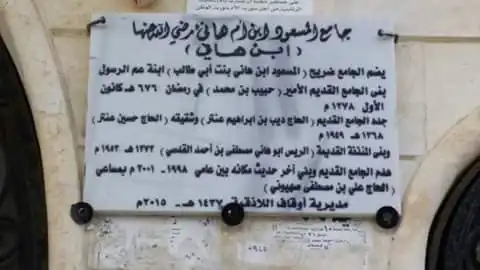 جامع المسعود ابن أم هانئ رضي الله عنها
( ابن هاني )
يضم الجامع ضريح ( المسعود ابن هاني بنت أبي طالب ) ابنة عم الرسول
بنى الجامع القديم الأمير ( حبيب بن محمد ) في رمضان ٦٧٦ هـ كانون
الأول ١٢٧٨ م
جدد الجامع القديم ( الحاج ديب بن ابراهيم عنتر ) وشقيقته ( الحاج حسين عنتر )
١٣٦٨ هـ ١٩٤٩ م
وبنى المئذنة القديمة ( الريس ابو هاني مصطفى بن أحمد القدسي ) ١٣٧٢ هـ ١٩٥٣ م
هدم الجامع القديم وبني آخر حديث مكانه بين عامي ١٩٩٨ - ٢٠٠١ م بمساعي
( الحاج علي بن مصطفى صهيوني )
مديرية أوقاف اللاذقية ١٤٣٧ هـ - ٢٠١٥ م